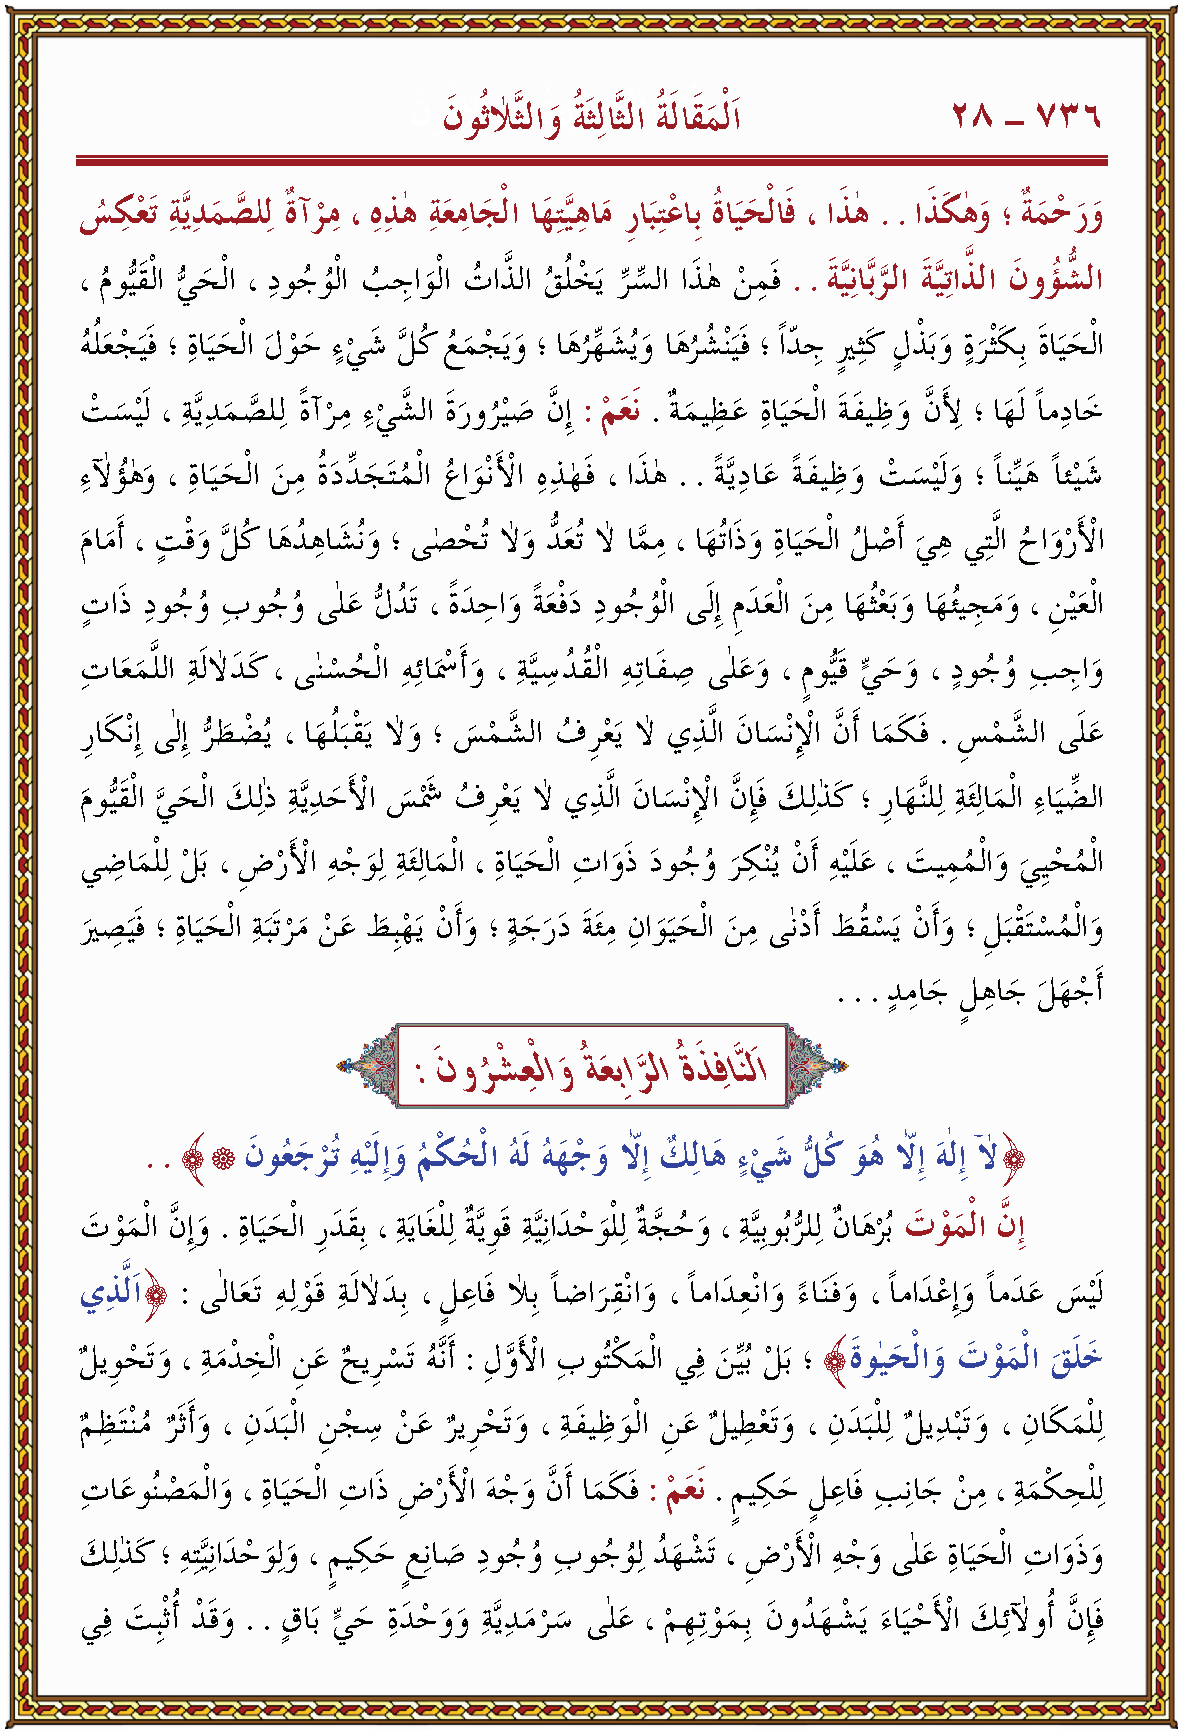 ٧٣٦ ـ ٢٨ اَلْمَقَالَةُ الثَّالِثَةُ وَالثَّلَاثُونَ
وَرَحْمَةٌ ؛ وَهٰكَذَا . . هٰذَا ، فَالْحَيَاةُ بِاعْتِبَارِ مَاهِيَّتِهَا الْجَامِعَةِ هٰذِهِ ، مِرْآةٌ لِلصَّمَدِيَّةِ تَعْكِسُ
الشُّؤُونَ الذَّاتِيَّةَ الرَّبَّانِيَّةَ . . فَمِنْ هٰذَا السِّرِّ يَخْلُقُ الذَّاتُ الْوَاجِبُ الْوُجُودِ ، الْحَيُّ الْقَيُّومُ ،
الْحَيَاةَ بِكَثْرَةٍ وَبَذْلٍ كَثِيرٍ جِدّاً ؛ فَيَنْشُرُهَا وَيُشَهِّرُهَا ؛ وَيَجْمَعُ كُلَّ شَيْءٍ حَوْلَ الْحَيَاةِ ؛ فَيَجْعَلُهُ
خَادِماً لَهَا ؛ لِأَنَّ وَظِيفَةَ الْحَيَاةِ عَظِيمَةٌ . نَعَمْ : إِنَّ صَيْرُورَةَ الشَّيْءِ مِرْآةً لِلصَّمَدِيَّةِ ، لَيْسَتْ
شَيْئاً هَيِّناً ؛ وَلَيْسَتْ وَظِيفَةً عَادِيَّةً . . هٰذَا ، فَهٰذِهِ الْأَنْوَاعُ الْمُتَجَدِّدَةُ مِنَ الْحَيَاةِ ، وَهٰؤُلَاءِ
الْأَرْوَاحُ الَّتِي هِيَ أَصْلُ الْحَيَاةِ وَذَاتُهَا ، مِمَّا لَا تُعَدُّ وَلَا تُحْصٰى ؛ وَنُشَاهِدُهَا كُلَّ وَقْتٍ ، أَمَامَ
الْعَيْنِ ، وَمَجِيئُهَا وَبَعْثُهَا مِنَ الْعَدَمِ إِلَى الْوُجُودِ دَفْعَةً وَاحِدَةً ، تَدُلُّ عَلٰى وُجُوبِ وُجُودِ ذَاتٍ
وَاجِبِ وُجُودٍ ، وَحَيٍّ قَيُّومٍ ، وَعَلٰى صِفَاتِهِ الْقُدُسِيَّةِ ، وَأَسْمَائِهِ الْحُسْنٰى ، كَدَلَالَةِ اللَّمَعَاتِ
عَلَى الشَّمْسِ . فَكَمَا أَنَّ الْإِنْسَانَ الَّذِي لَا يَعْرِفُ الشَّمْسَ ؛ وَلَا يَقْبَلُهَا ، يُضْطَرُّ إِلٰى إِنْكَارِ
الضِّيَاءِ الْمَالِئَةِ لِلنَّهَارِ ؛ كَذٰلِكَ فَإِنَّ الْإِنْسَانَ الَّذِي لَا يَعْرِفُ شَمْسَ الْأَحَدِيَّةِ ذٰلِكَ الْحَيَّ الْقَيُّومَ
الْمُحْيِيَ وَالْمُمِيتَ ، عَلَيْهِ أَنْ يُنْكِرَ وُجُودَ ذَوَاتِ الْحَيَاةِ ، الْمَالِئَةِ لِوَجْهِ الْأَرْضِ ، بَلْ لِلْمَاضِي
وَالْمُسْتَقْبَلِ ؛ وَأَنْ يَسْقُطَ أَدْنٰى مِنَ الْحَيَوَانِ مِئَةَ دَرَجَةٍ ؛ وَأَنْ يَهْبِطَ عَنْ مَرْتَبَةِ الْحَيَاةِ ؛ فَيَصِيرَ
أَجْهَلَ جَاهِلٍ جَامِدٍ . . .
اَلنَّافِذَةُ الرَّابِعَةُ وَالْعِشْرُونَ :
﴿لَآ إِلٰهَ إِلَّا هُوَ كُلُّ شَيْءٍ هَالِكٌ إِلَّا وَجْهَهُ لَهُ الْحُكْمُ وَإِلَيْهِ تُرْجَعُونَ ۞﴾ . .
إِنَّ الْمَوْتَ بُرْهَانٌ لِلرُّبُوبِيَّةِ ، وَحُجَّةٌ لِلْوَحْدَانِيَّةِ قَوِيَّةٌ لِلْغَايَةِ ، بِقَدَرِ الْحَيَاةِ . وَإِنَّ الْمَوْتَ
لَيْسَ عَدَماً وَإِعْدَاماً ، وَفَنَاءً وَانْعِدَاماً ، وَانْقِرَاضاً بِلَا فَاعِلٍ ، بِدَلَالَةِ قَوْلِهِ تَعَالٰى : ﴿اَلَّذِي
خَلَقَ الْمَوْتَ وَالْحَيٰوةَ﴾ ؛ بَلْ بُيِّنَ فِي الْمَكْتُوبِ الْأَوَّلِ : أَنَّهُ تَسْرِيحٌ عَنِ الْخِدْمَةِ ، وَتَحْوِيلٌ
لِلْمَكَانِ ، وَتَبْدِيلٌ لِلْبَدَنِ ، وَتَعْطِيلٌ عَنِ الْوَظِيفَةِ ، وَتَحْرِيرٌ عَنْ سِجْنِ الْبَدَنِ ، وَأَثَرٌ مُنْتَظِمٌ
لِلْحِكْمَةِ ، مِنْ جَانِبِ فَاعِلٍ حَكِيمٍ . نَعَمْ : فَكَمَا أَنَّ وَجْهَ الْأَرْضِ ذَاتِ الْحَيَاةِ ، وَالْمَصْنُوعَاتِ
وَذَوَاتِ الْحَيَاةِ عَلٰى وَجْهِ الْأَرْضِ ، تَشْهَدُ لِوُجُوبِ وُجُودِ صَانِعٍ حَكِيمٍ ، وَلِوَحْدَانِيَّتِهِ ؛ كَذٰلِكَ
فَإِنَّ أُولٰٓئِكَ الْأَحْيَاءَ يَشْهَدُونَ بِمَوْتِهِمْ ، عَلٰى سَرْمَدِيَّةِ وَوَحْدَةِ حَيٍّ بَاقٍ . . وَقَدْ أُثْبِتَ فِي